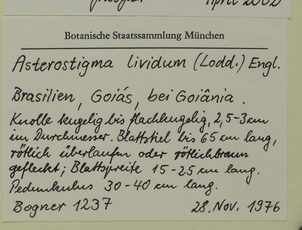 April 2002
Botanische Staatssammlung München
Asterostigma lividum (Lodd.) Engl.
Brasilien, Goiás, bei Goiânia.
Knolle kugelig bis flachkugelig, 2,5-3cm
im Durchmesser. Blattstiel bis 65 cm lang,
rötlich überlaufen oder rötlichbraun
gefleckt; Blattspreite 15-25 cm lang.
Pedunkulus 30-40 cm lang.
Bogner 1237 28. Nov. 1976